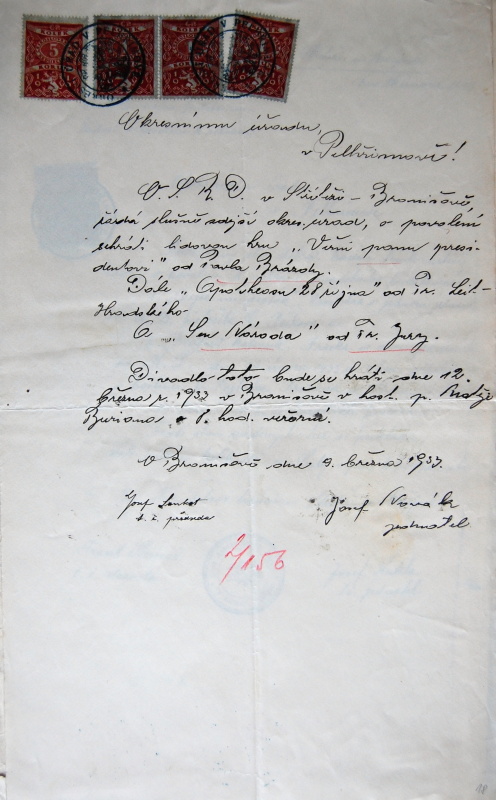 KOLEK KOLEK KOLEK KOLEK
5
Okresnímu úřadu,
v Pelhřimově!
O. S. R. D. v Střítěži - Branišově,
žádá slušně zdejší okres. úřad, o povolení
sehráti lidovou hru „Věrni panu presi-
dentovi" od Pavla Brázdy.
Dále „Apotheosa 28 října" od Fr. Leit-
Hradského
A „Sen Národa" od Fr. Jury.
Divadlo toto bude se hráti dne 12.
března r. 1933 v Branišově v host. p. Matěje
Buriana o 8. hod. večerní.
V Branišově dne 9. března 1933.
Josef
t. č. předseda
Josef Novák
jednatel
2/156
18